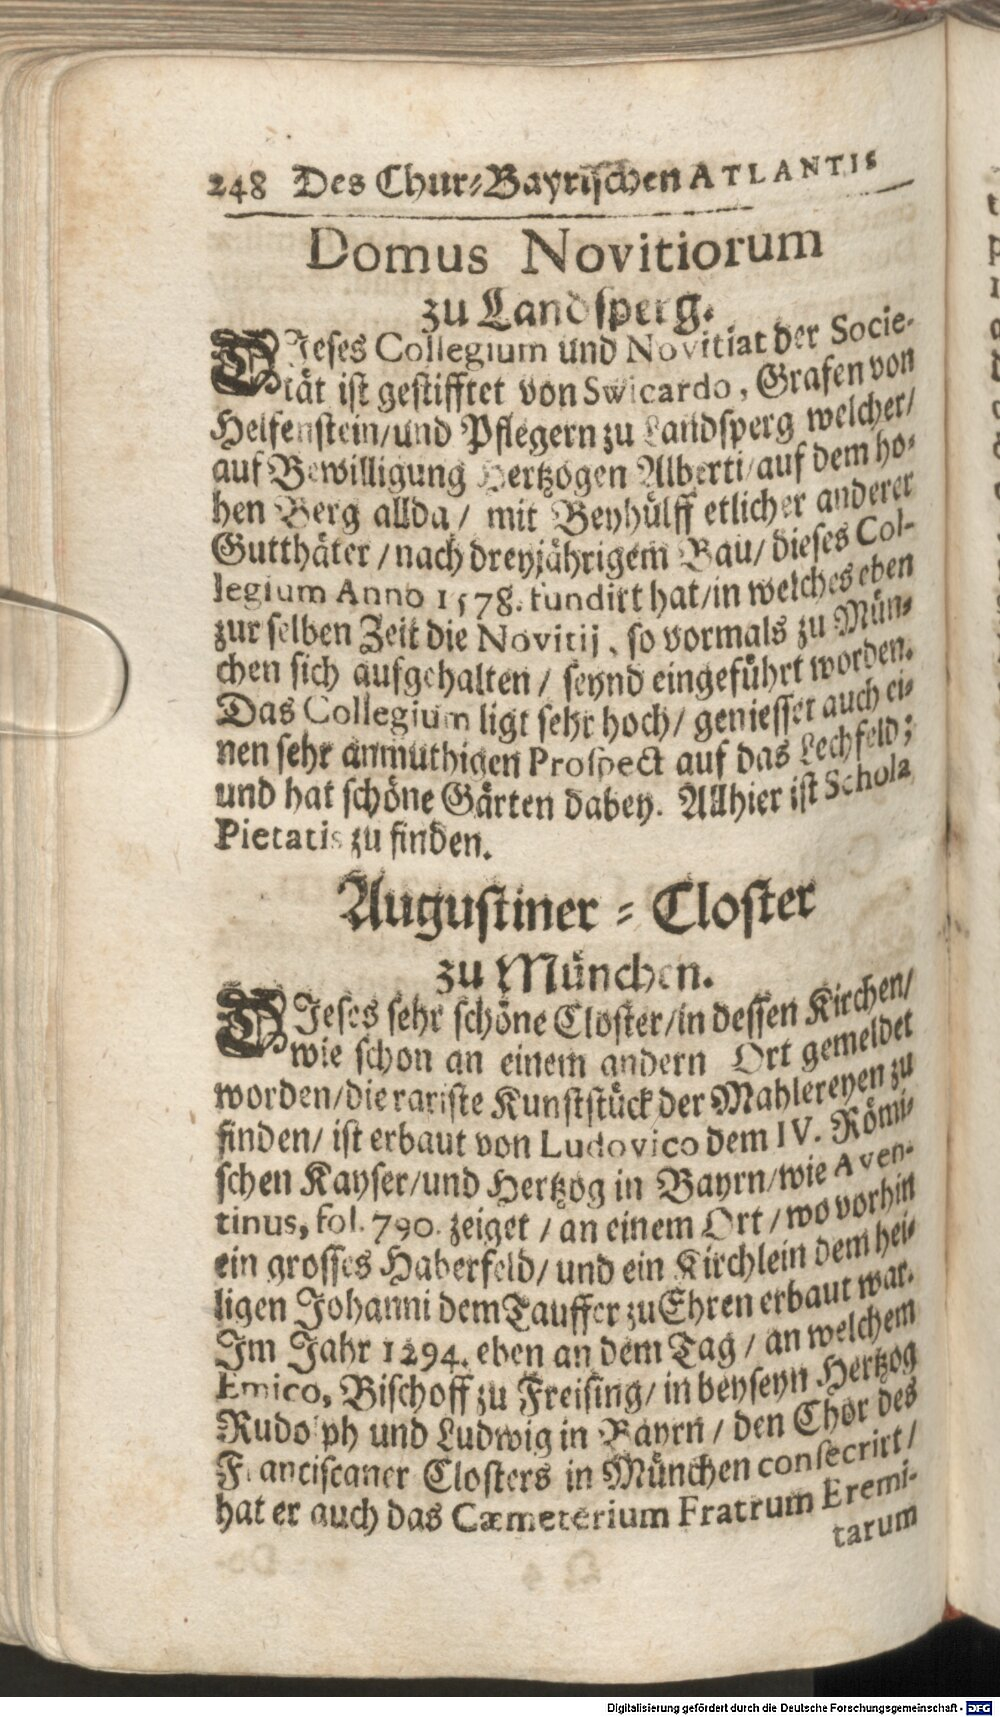 248 Des Chur-Bayrischen ATLANTIS
Domus Novitiorum
zu Landsperg.
DIeses Collegium und Novitiat der Socie-
tät ist gestifftet von Swicardo, Grafen von
Helfenstein/und Pflegern zu Landsperg welcher/
auf Bewilligung Hertzogen Alberti/auf dem ho-
hen Berg allda/ mit Beyhülff etlicher anderer
Gutthäter/nach dreyjährigem Bau/ dieses Col-
legium Anno 1578. fundirt hat/in welches eben
zur selben Zeit die Novitij, so vormals zu Mün-
chen sich aufgehalten/ seynd eingeführt worden.
Das Collegium ligt sehr hoch/ geniesset auch ei-
nen sehr anmuthigen Prospect auf das Lechfeld;
und hat schöne Gärten dabey. Allhier ist Schola
Pietatis zu finden.
Augustiner-Closter
zu München.
DIeses sehr schöne Closter/in dessen Kirchen/
wie schon an einem andern Ort gemeldet
worden/die rariste Kunststück der Mahlereyen zu
finden/ ist erbaut von Ludovico dem IV. Römi-
schen Kayser/und Hertzog in Bayrn/wie Aven-
tinus, fol. 790. zeiget/an einem Ort/wo vorhin
ein grosses Haberfeld/ und ein Kirchlein dem hei-
ligen Johanni dem Tauffer zu Ehren erbaut war.
Im Jahr 1294. eben an dem Tag/ an welchem
Emico, Bischoff zu Freising/ in beyseyn Hertzog
Rudolph und Ludwig in Bayrn/ den Chor des
Franciscaner Closters in München consecrirt/
hat er auch das Cæmeterium Fratrum Eremi-
tarum
Digitalisierung gefördert durch die Deutsche Forschungsgemeinschaft - DFG